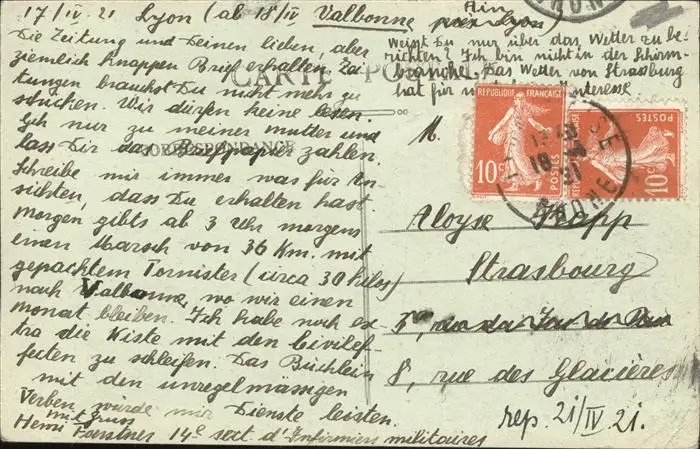 17/IV 21 Lyon (ab 18/IV Valbonne Ain
Die Zeitung und Deinen lieben, aber
ziemlich knappen Brief erhalten. Zei-
tungen brauchst Du nicht mehr zu
schicken. Wir dürfen keine lesen.
Geh nur zu meiner Mutter und
lass Dir das papier zahlen.
Schreibe mir immer was für An-
sichten, dass Du erhalten hast.
Morgen gibts ab 3 Uhr morgens
einen Marsch von 36 Km. mit
gepacktem Tornister (circa 30 kilos)
nach Valbonne, wo wir einen
Monat bleiben. Ich habe noch ex-
tra die Kiste mit den Civilef-
fecten zu schleifen. Das Büchlein
mit den unregelmässigen
Verben, würde mir Dienste leisten.
mit Gruss
Henri Foerstner 14e sect. d'Infirmiers militaires
Weisst Du nur über das Wetter zu be-
richten? Ich bin nicht in der Schirm-
branche. Das Wetter von Strasburg
hat für Interesse
CARTE POSTALE
CORRESPONDANCE
REPUBLIQUE FRANÇAISE
10c
POSTES
POSTES
10c
RHONE
M.
Aloyse Rapp
Strasbourg
8, rue des Glacières
rep. 21/IV 21.